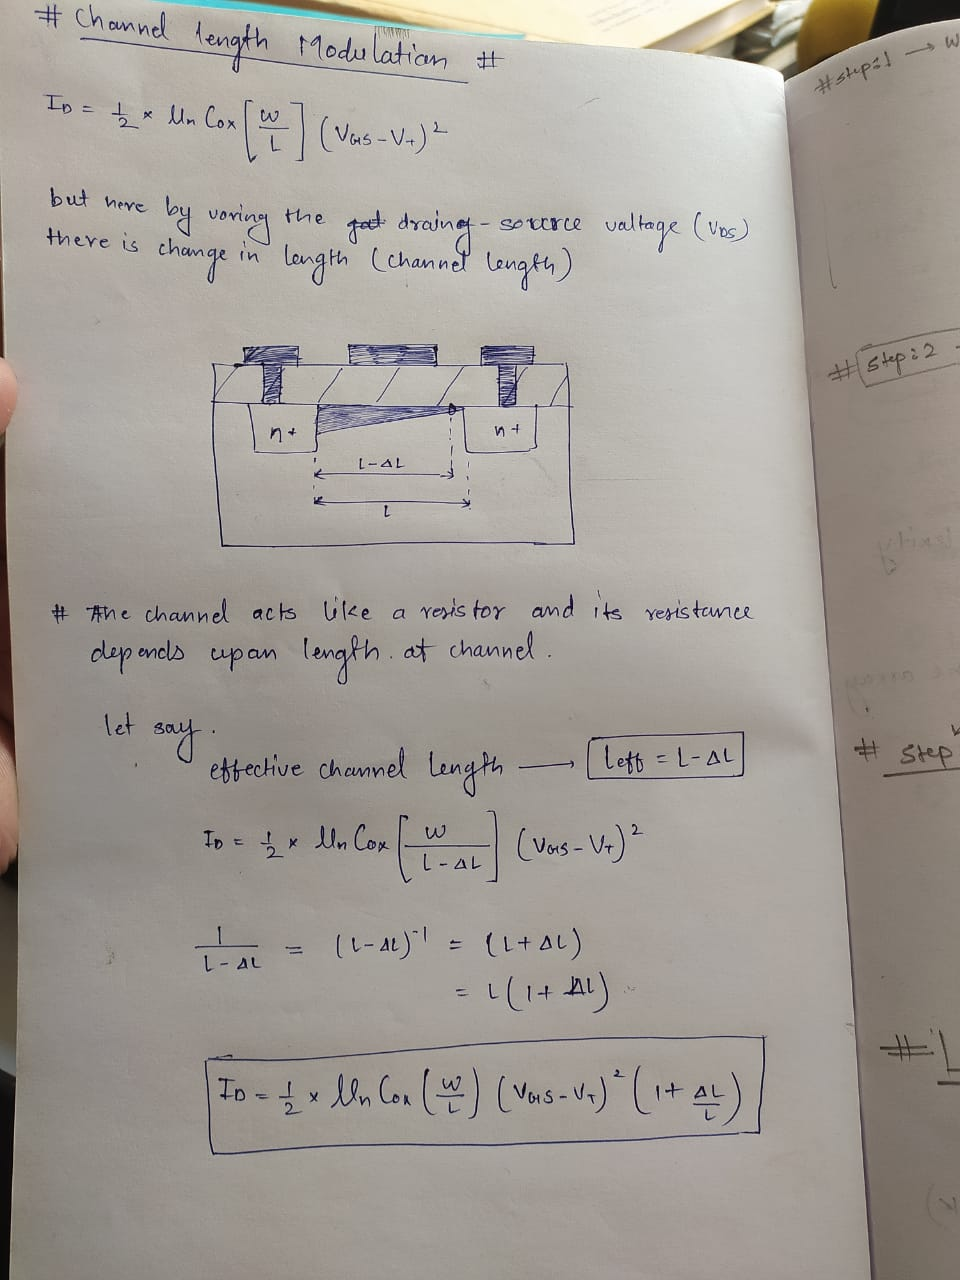 # Channel length Modulation #
ID = 1/2 × Un Cox [W/L] (VGS - VT)²
but here by varing the drain - source valtage (VDS)
there is change in length (channel length)
n+
n+
L-ΔL
L
# The channel acts like a resistor and its resistance
depends upan length. at channel.
let say.
effective channel length → Leff = L-ΔL
ID = 1/2 × Un Cox [W/L-ΔL] (VGS - VT)²
1/L-ΔL = (L-ΔL)⁻¹ = (L+ΔL)
= L(1+ ΔL)
ID = 1/2 × Un Cox (W/L) (VGS - VT)² (1+ ΔL/L)
# step:1 → W
# Step:2
# Step
# L